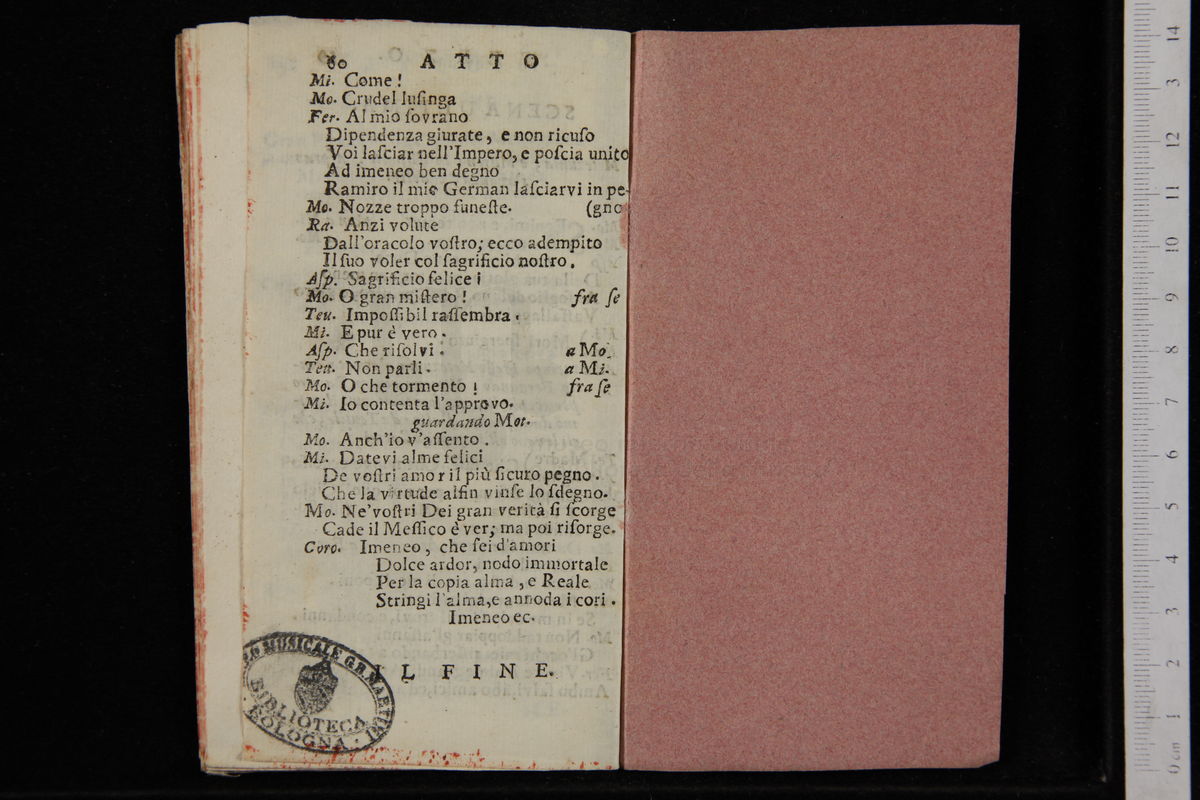 60 ATTO
Mi. Come !
Mo. Crudel luſinga
Fer. Al mio ſovrano
Dipendenza giurate, e non ricuſo
Voi laſciar nell'Impero, e poſcia unito
Ad imeneo ben degno
Ramiro il mio German laſciarvi in pe-
Mo. Nozze troppo funeſte. (gno
Ra. Anzi volute
Dall'oracolo voſtro; ecco adempito
Il ſuo voler col ſagrificio noſtro.
Aſp. Sagrificio felice !
Mo. O gran miſtero ! fra ſe
Teu. Impoſſibil raſſembra.
Mi. E pur è vero.
Aſp. Che riſolvi. a Mo.
Teu. Non parli. a Mi.
Mo. O che tormento ! fra ſe
Mi. Io contenta l'approvo.
guardando Mot.
Mo. Anch'io v'aſſento.
Mi. Datevi alme felici
De voſtri amor il più ſicuro pegno.
Che la virtude alfin vinſe lo ſdegno.
Mo. Ne'voſtri Dei gran verità ſi ſcorge
Cade il Meſſico è ver; ma poi riſorge.
Coro. Imeneo, che ſei d'amori
Dolce ardor, nodo immortale
Per la copia alma, e Reale
Stringi l'alma, e annoda i cori.
Imeneo ec.
IL FINE.
MUSICALE G.B. MARTINI
BIBLIOTECA
BOLOGNA
0 cm 1 2 3 4 5 6 7 8 9 10 11 12 13 14